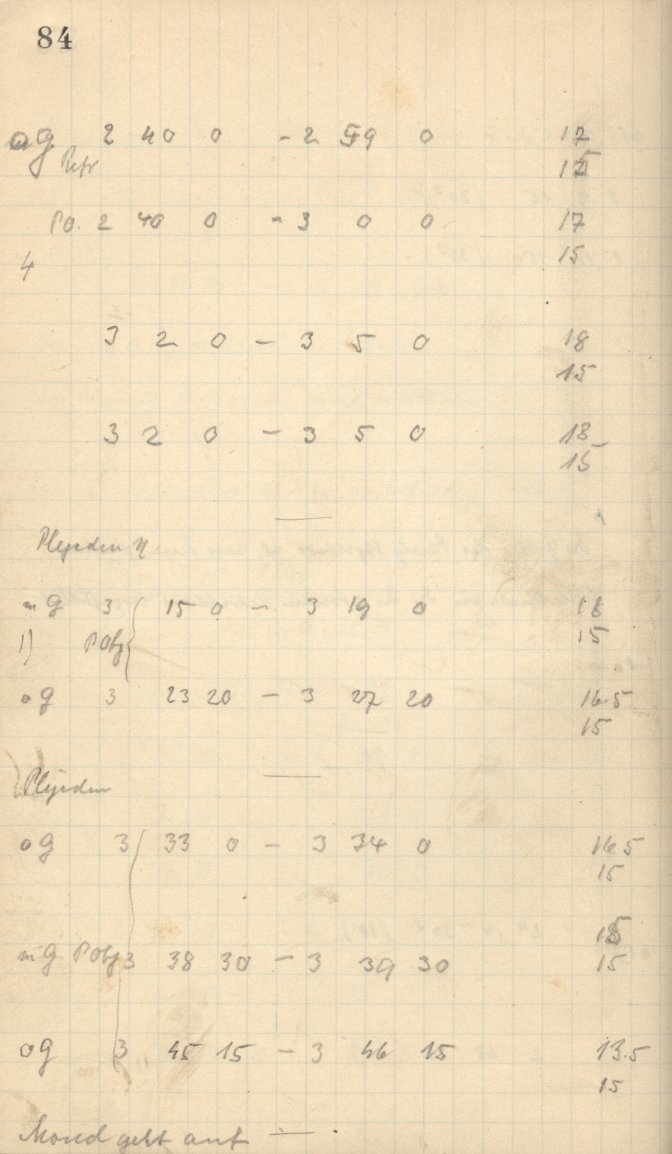 84
og 2 40 0 - 2 59 0 17
Refr 15
Po. 2 40 0 - 3 0 0 17
4 15
3 2 0 - 3 5 0 18
15
3 2 0 - 3 5 0 18
15
Plejaden
mg 3 15 0 - 3 19 0 18
1) PObj 15
og 3 23 20 - 3 27 20 16.5
15
Plejaden
og 3 33 0 - 3 34 0 16.5
15
15
mg PObj 3 38 30 - 3 39 30 15
og 3 45 15 - 3 46 15 13.5
15
Mond geht auf —